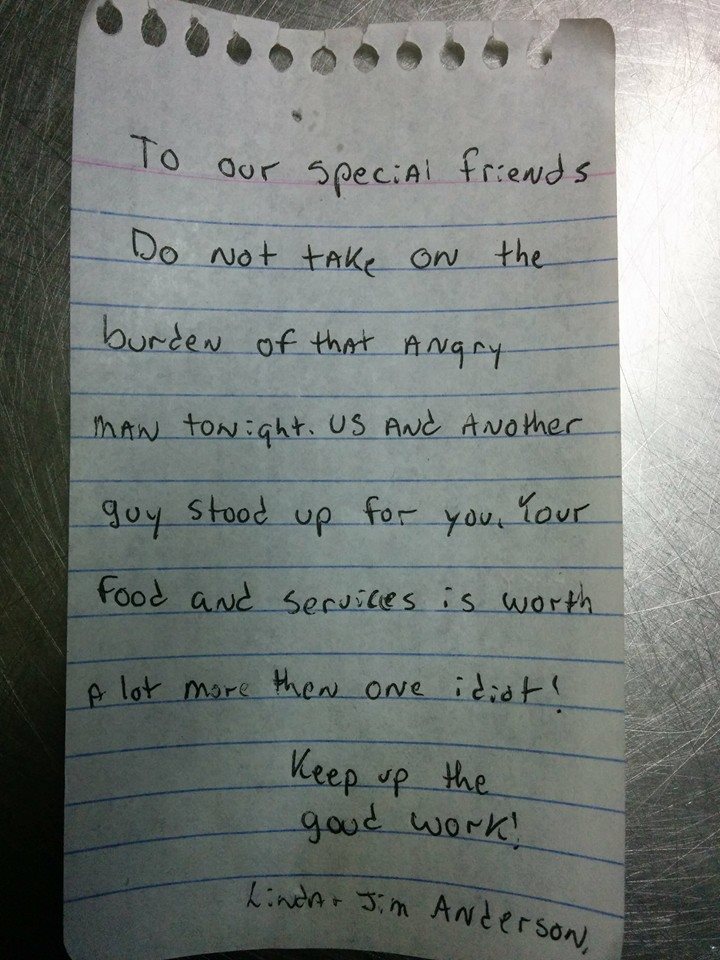 To our special friends
Do not take on the
burden of that angry
man tonight. us and another
guy stood up for you. Your
food and services is worth
a lot more then one idiot!
Keep up the
good work!
Linda + Jim Anderson,